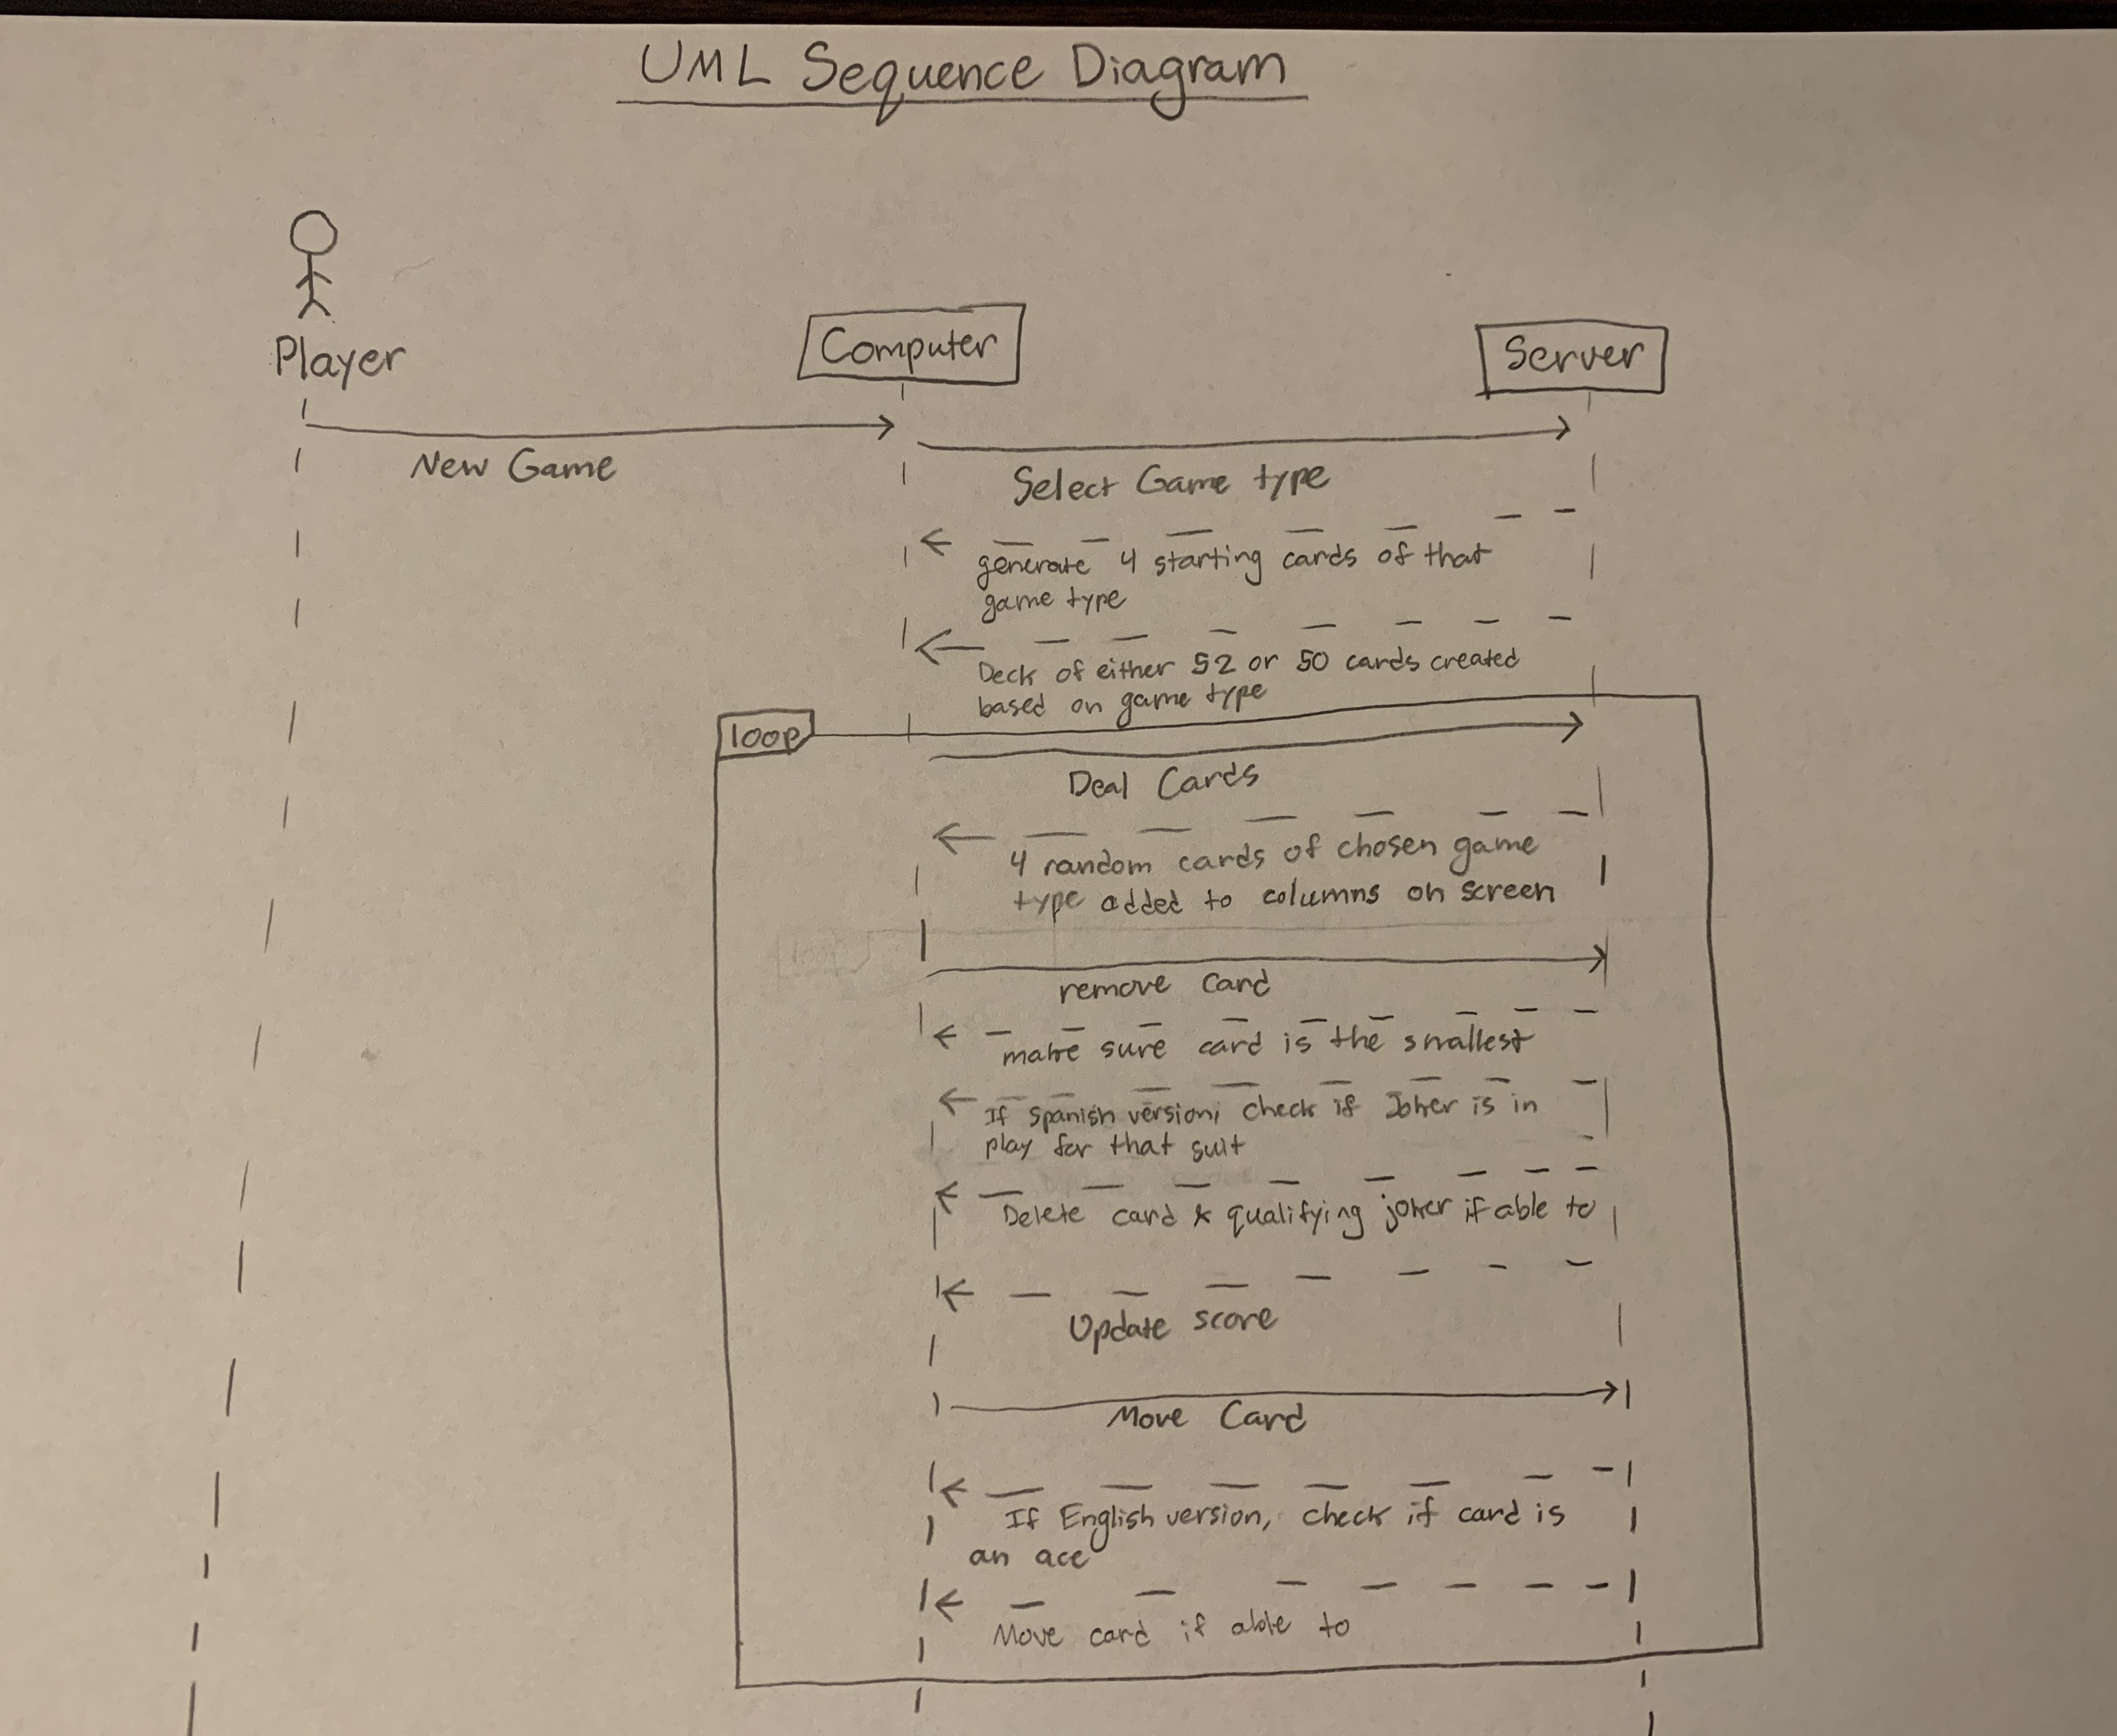 UML Sequence Diagram
Player
Computer
Server
New Game
Select Game type
generate 4 starting cards of that
game type
Deck of either 52 or 50 cards created
based on game type
loop
Deal Cards
4 random cards of chosen game
type added to columns on screen
loop
remove card
make sure card is the smallest
If Spanish version, check if Joker is in
play for that suit
Delete card & qualifying joker if able to
Update score
Move Card
If English version, check if card is
an ace
Move card if able to